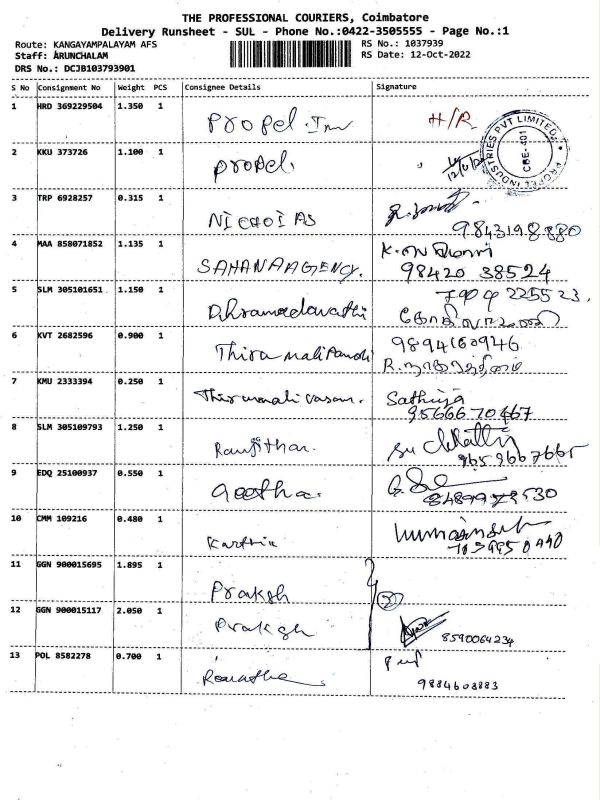 THE PROFESSIONAL COURIERS, Coimbatore
Delivery Runsheet - SUL - Phone No.:0422-3505555 - Page No.:1
Route: KANGAYAMPALAYAM AFS
RS No.: 1037939
Staff: ARUNCHALAM
RS Date: 12-Oct-2022
DRS No.: DCJB103793901
S No Consignment No Weight PCS Consignee Details Signature
1 HRD 369229504 1.350 1 Propel. H/R
PROPEL INDUSTRIES PVT LIMITED
CBE-401
2 KKU 373726 1.100 1 propel.
3 TRP 6928257 0.315 1 NICHOIAS
9843198880
4 MAA 858071852 1.135 1 SAHANAAGENCY.
98420 38524
5 SLM 305101651 1.150 1
225523
6 KVT 2682596 0.900 1
9894160946
7 KMU 2333394 0.250 1 Sathiya
9566670467
8 SLM 305109793 1.250 1 Ranjithan.
9659667665
9 EDQ 25100937 0.550 1 Geetha.
10 CMM 109216 0.480 1 Karthik
11 GGN 900015695 1.895 1 Praksh
12 GGN 900015117 2.050 1 Praksh
8590064234
13 POL 8582278 0.700 1
9884608883